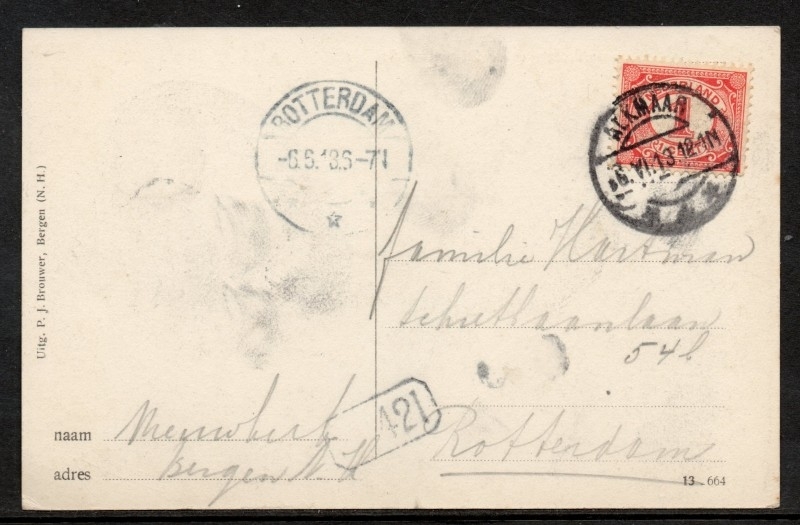 Uitg. P. J. Brouwer, Bergen (N. H.)
ROTTERDAM
-6.6.13.6-7N
NEDERLAND
1
ALKMAAR
6.VI.13.12-1N
familie Hartman
54b
Rotterdam
421
naam
adres
Bergen N. H.
13 664